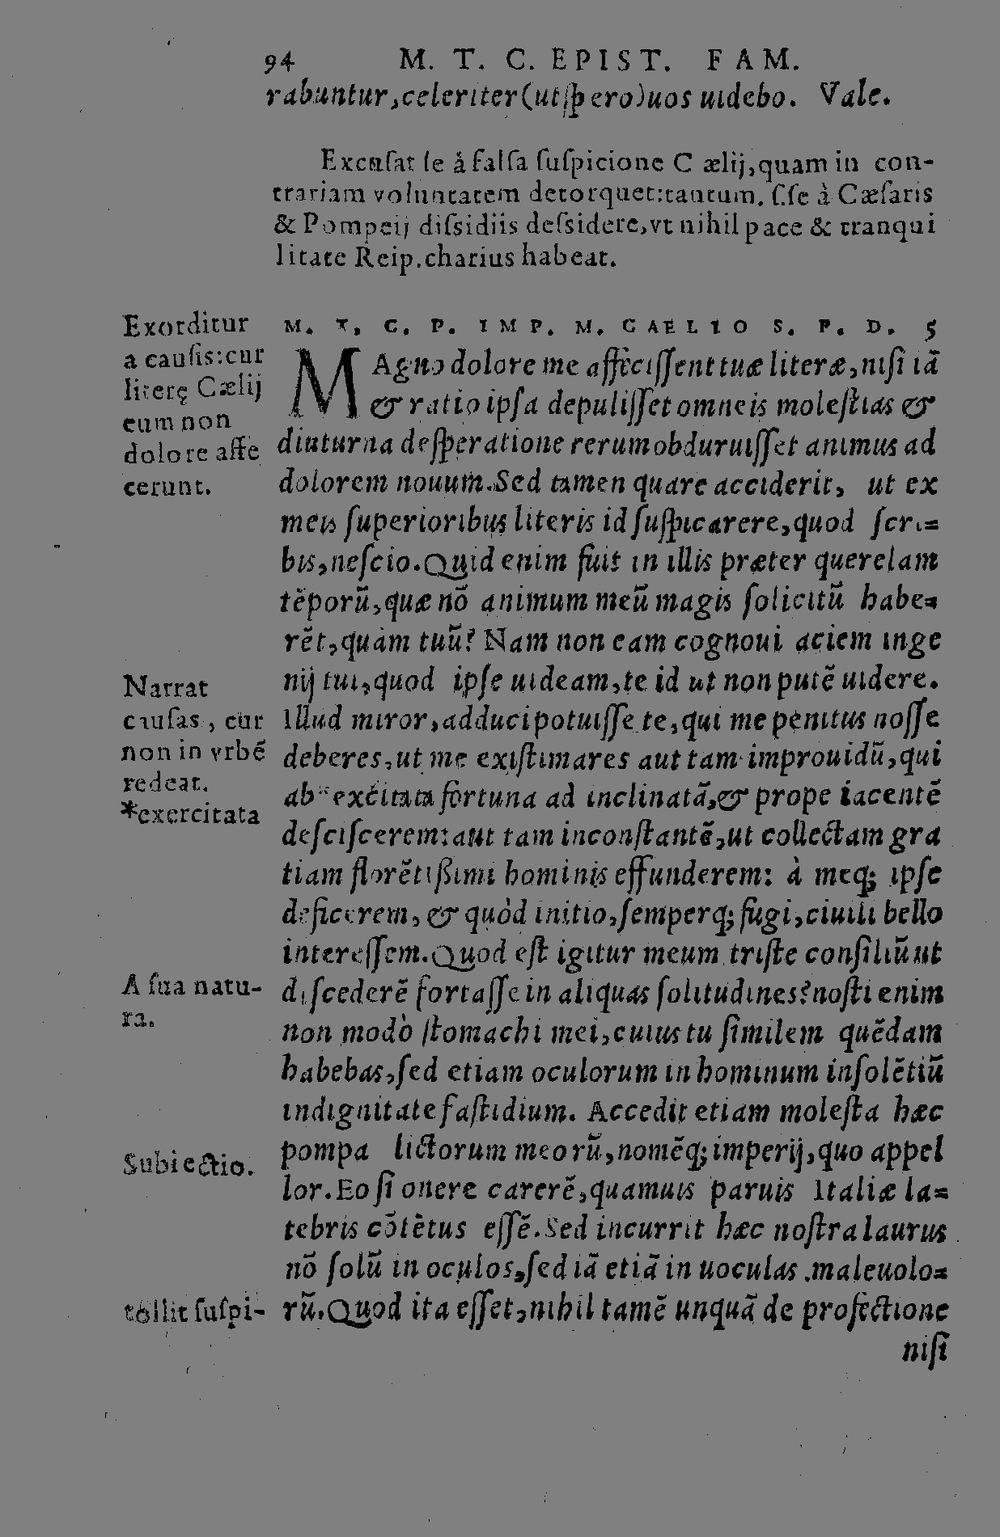 94 M. T. C. EPIST. FAM.
rabuntur,celeriter(utſpero)uos uidebo. Vale.
Excuſat ſe á falſa ſuſpicione Cælij,quam in con-
trariam voluntatem detorquet:tantum. ſ.ſe à Cæſaris
& Pompeij diſsidiis deſsidere,vt nihil pace & tranqui
litate Reip.charius habeat.
M. T. C. P. IMP. M. CAELIO S. P. D. 5
Exorditur
a cauſis:cur
literę Cælij
eum non
dolore affe
cerunt.
MAgno dolore me affeciſſent tuæ literæ,niſi iã
& ratio ipſa depuliſſet omneis moleſtias &
diuturna deſperatione rerum obduruiſſet animus ad
dolorem nouum.Sed tamen quare acciderit, ut ex
meis ſuperioribus literis id ſuſpicarere,quod ſcri=
bis,neſcio.Quid enim fuit in illis præter querelam
tẽporũ,quæ nõ animum meũ magis ſolicitũ habe=
rẽt,quàm tuũ? Nam non eam cognoui aciem inge
nij tui,quod ipſe uideam,te id ut non putẽ uidere.
Illud miror,adduci potuiſſe te,qui me penitus noſſe
deberes,ut me exiſtimares aut tam improuidũ,qui
ab *excitata fortuna ad inclinatã,& prope iacentẽ
deſciſcerem:aut tam inconſtantẽ,ut collectam gra
tiam florẽtiſſimi hominis effunderem: à meq; ipſe
deficerem, & quòd initio,ſemperq; fugi,ciuili bello
intereſſem.Quod eſt igitur meum triſte conſiliũ ut
diſcederẽ fortaſſe in aliquas ſolitudines?noſti enim
non modò ſtomachi mei,cuius tu ſimilem quẽdam
habebas,ſed etiam oculorum in hominum inſolẽtiũ
indignitate faſtidium. Accedit etiam moleſta hæc
pompa lictorum meorũ,nomẽq; imperij,quo appel
lor.Eo ſi onere carerẽ,quamuis paruis Italiæ la=
tebris cõtẽtus eſſẽ.Sed incurrit hæc noſtra laurus
nõ ſolũ in oculos,ſed iã etiã in uoculas maleuolo=
rũ.Quod ita eſſet,nihil tamẽ unquã de profectione
niſi
Narrat
cauſas, cur
non in vrbẽ
redeat.
*exercitata
A ſua natu-
ra.
Subiectio.
tollit ſuſpi-